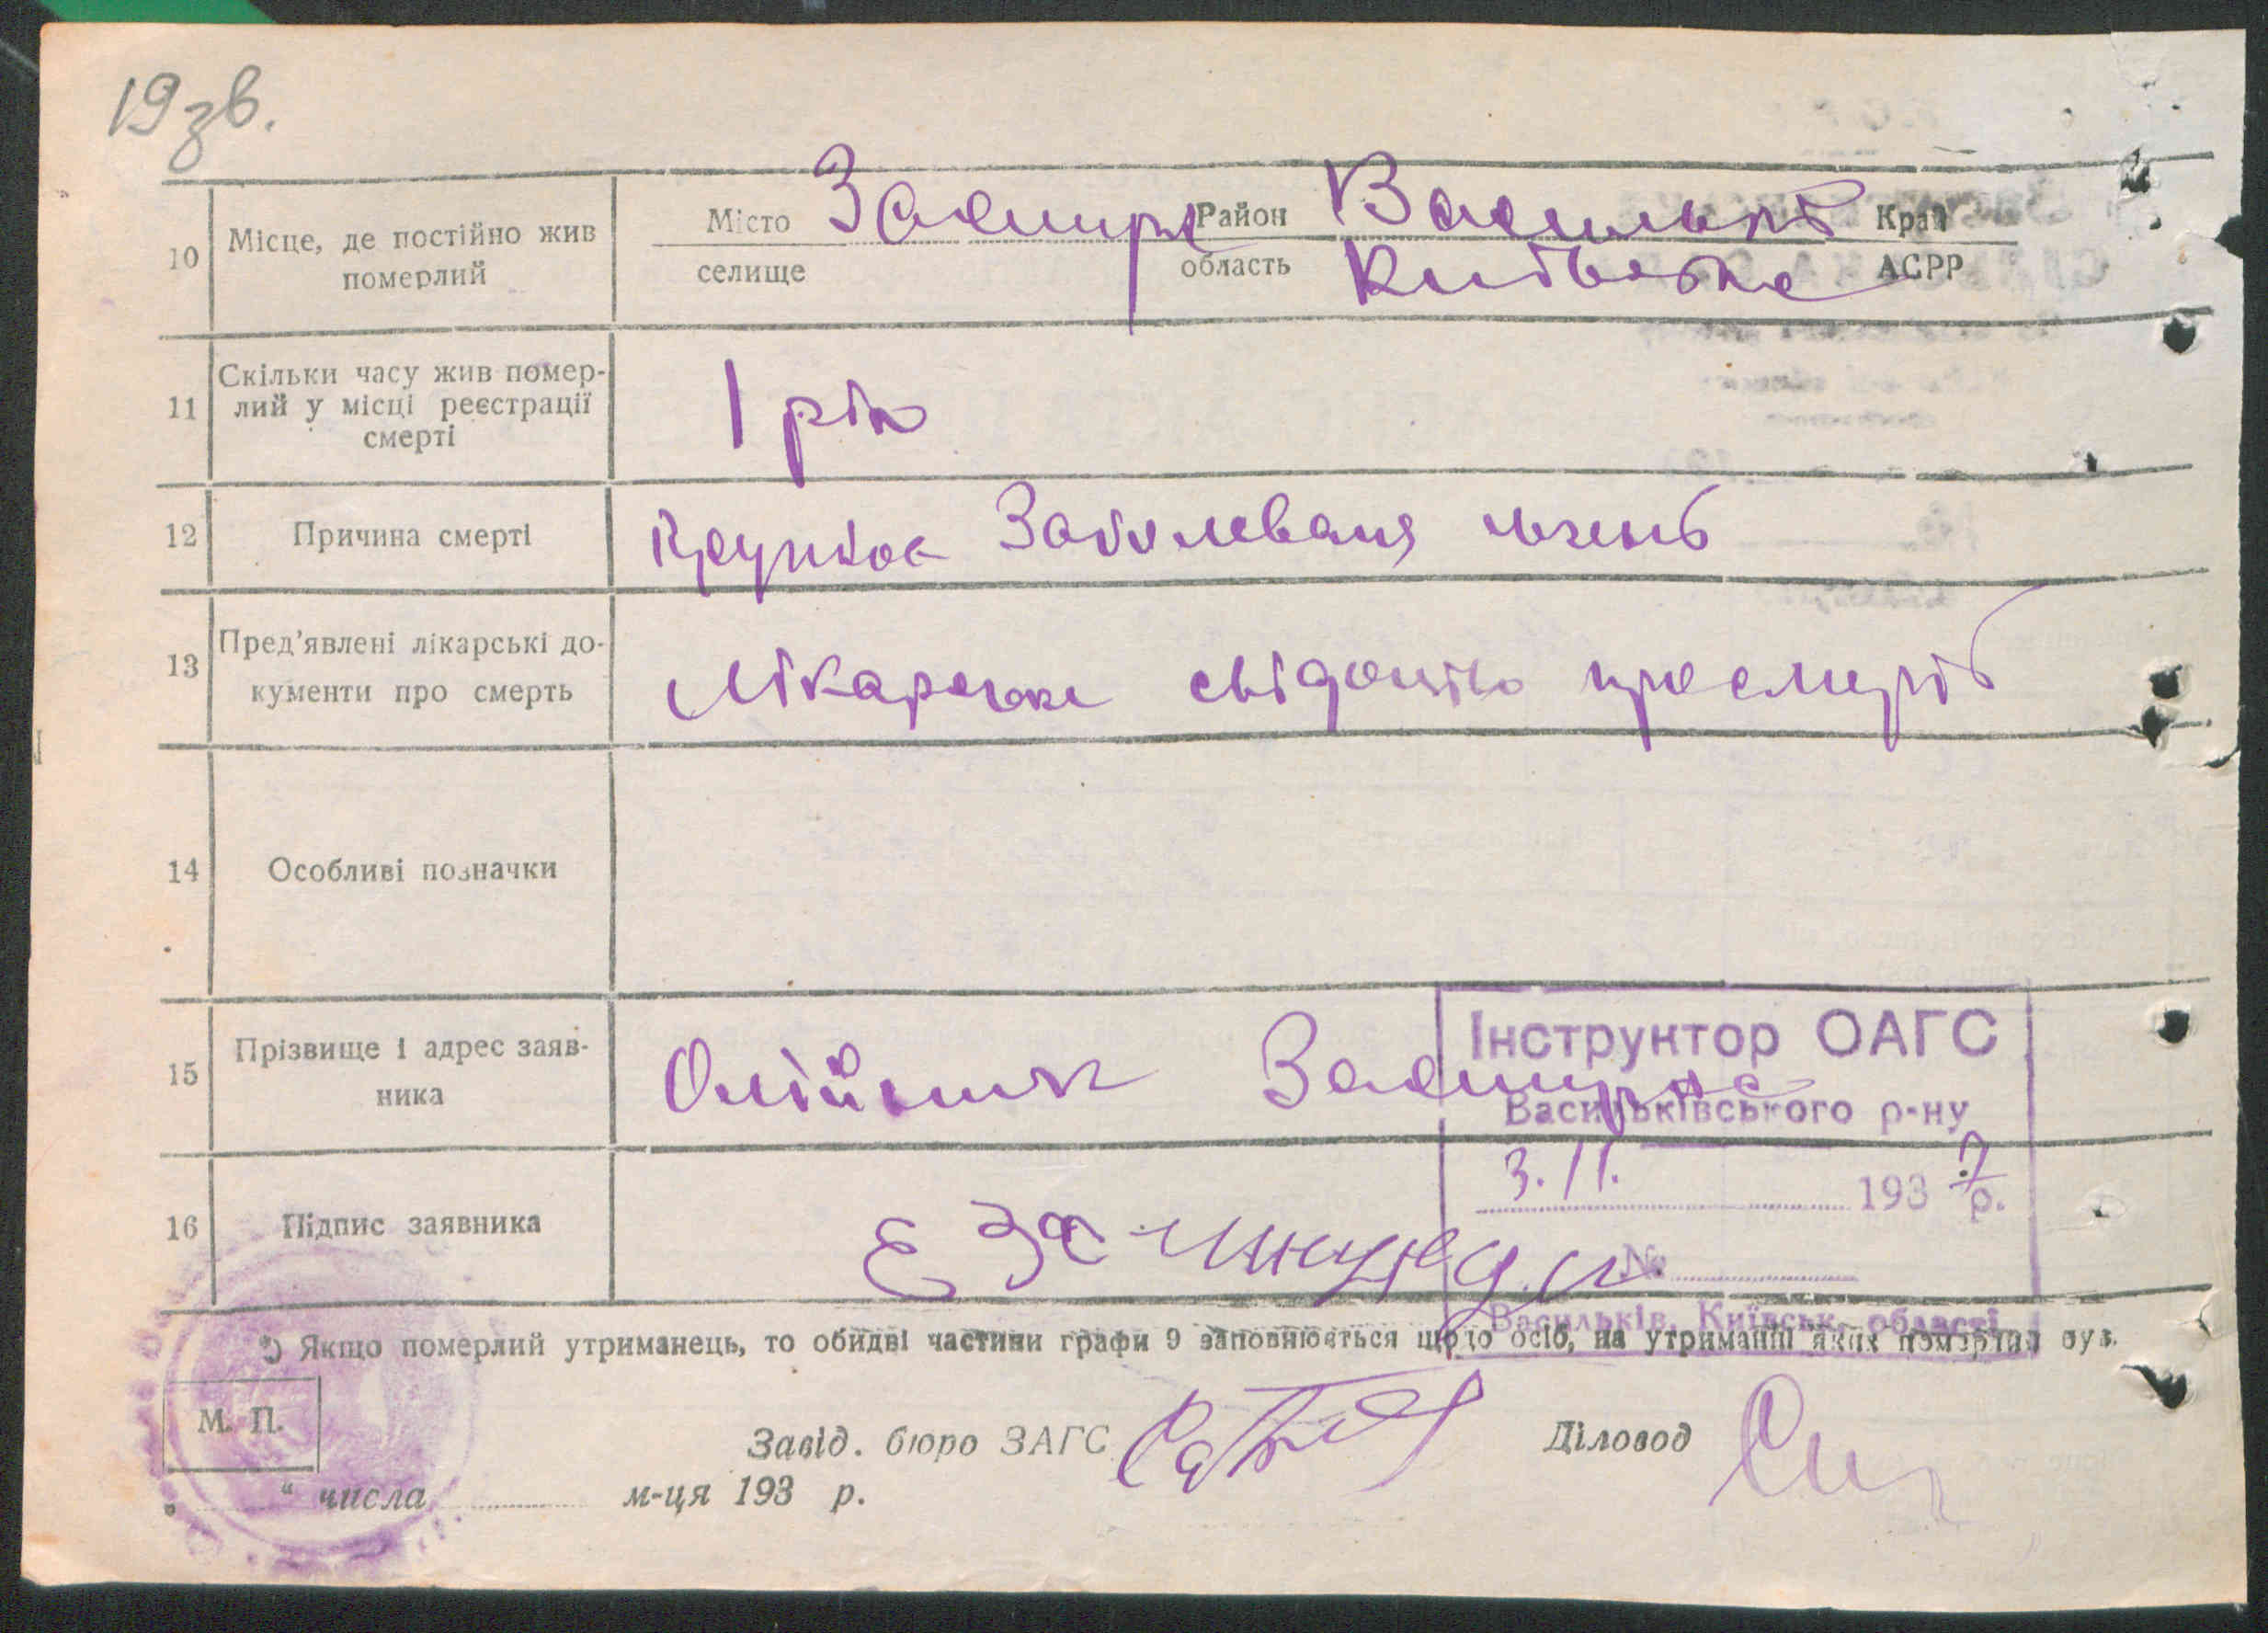 19зв.
10 Місце, де постійно жив померлий
Місто Застугна Район Васильків Край
селище область Київська АСРР
11 Скільки часу жив помер-
лий у місці реєстрації
смерті
1 рік
12 Причина смерті
Крупіоє Заболеваня
13 Пред'явлені лікарські до-
кументи про смерть
Лікарське свідоцтво про смерть
14 Особливі позначки
15 Прізвище і адрес заяв-
ника
Олійник
Інструктор ОАГС
Васильківського р-ну
3. 11. 1937 р.
№
Васильків, Київськ. області
16 Підпис заявника
*) Якщо померлий утриманець, то обидві частини графи 9 заповнюються щодо осіб, на утриманні яких померлий був.
М. П.
Завід. бюро ЗАГС
Діловод
„ “ числа м-ця 193 р.